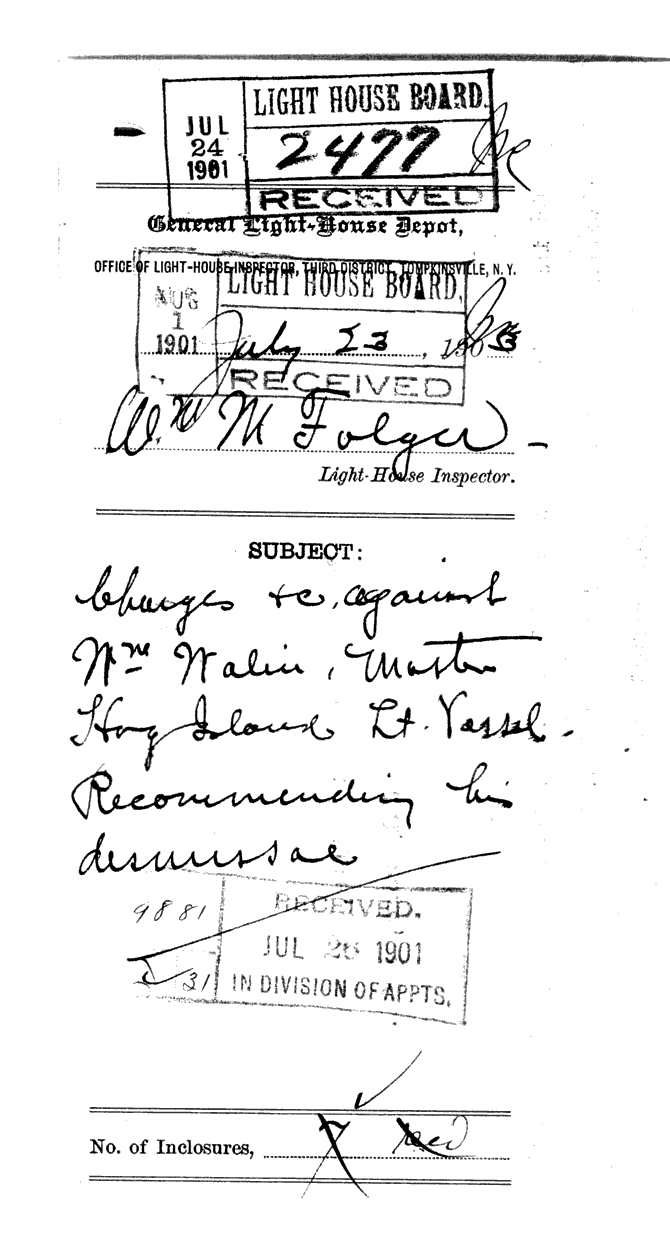 LIGHT HOUSE BOARD.
JUL
24
1901
2477
RECEIVED
General Light-House Depot,
OFFICE OF LIGHT-HOUSE INSPECTOR, THIRD DISTRICT, TOMPKINSVILLE, N. Y.
LIGHT HOUSE BOARD.
AUG
1
1901
July 23, 190
RECEIVED
Wm M Folger
Light-House Inspector.
SUBJECT:
Charges &c. against
Wm Walin, Master
Hog Island Lt. Vessel.
Recommending his
dismissal
9881
RECEIVED.
JUL 26 1901
31
IN DIVISION OF APPTS.
No. of Inclosures, 7 recd